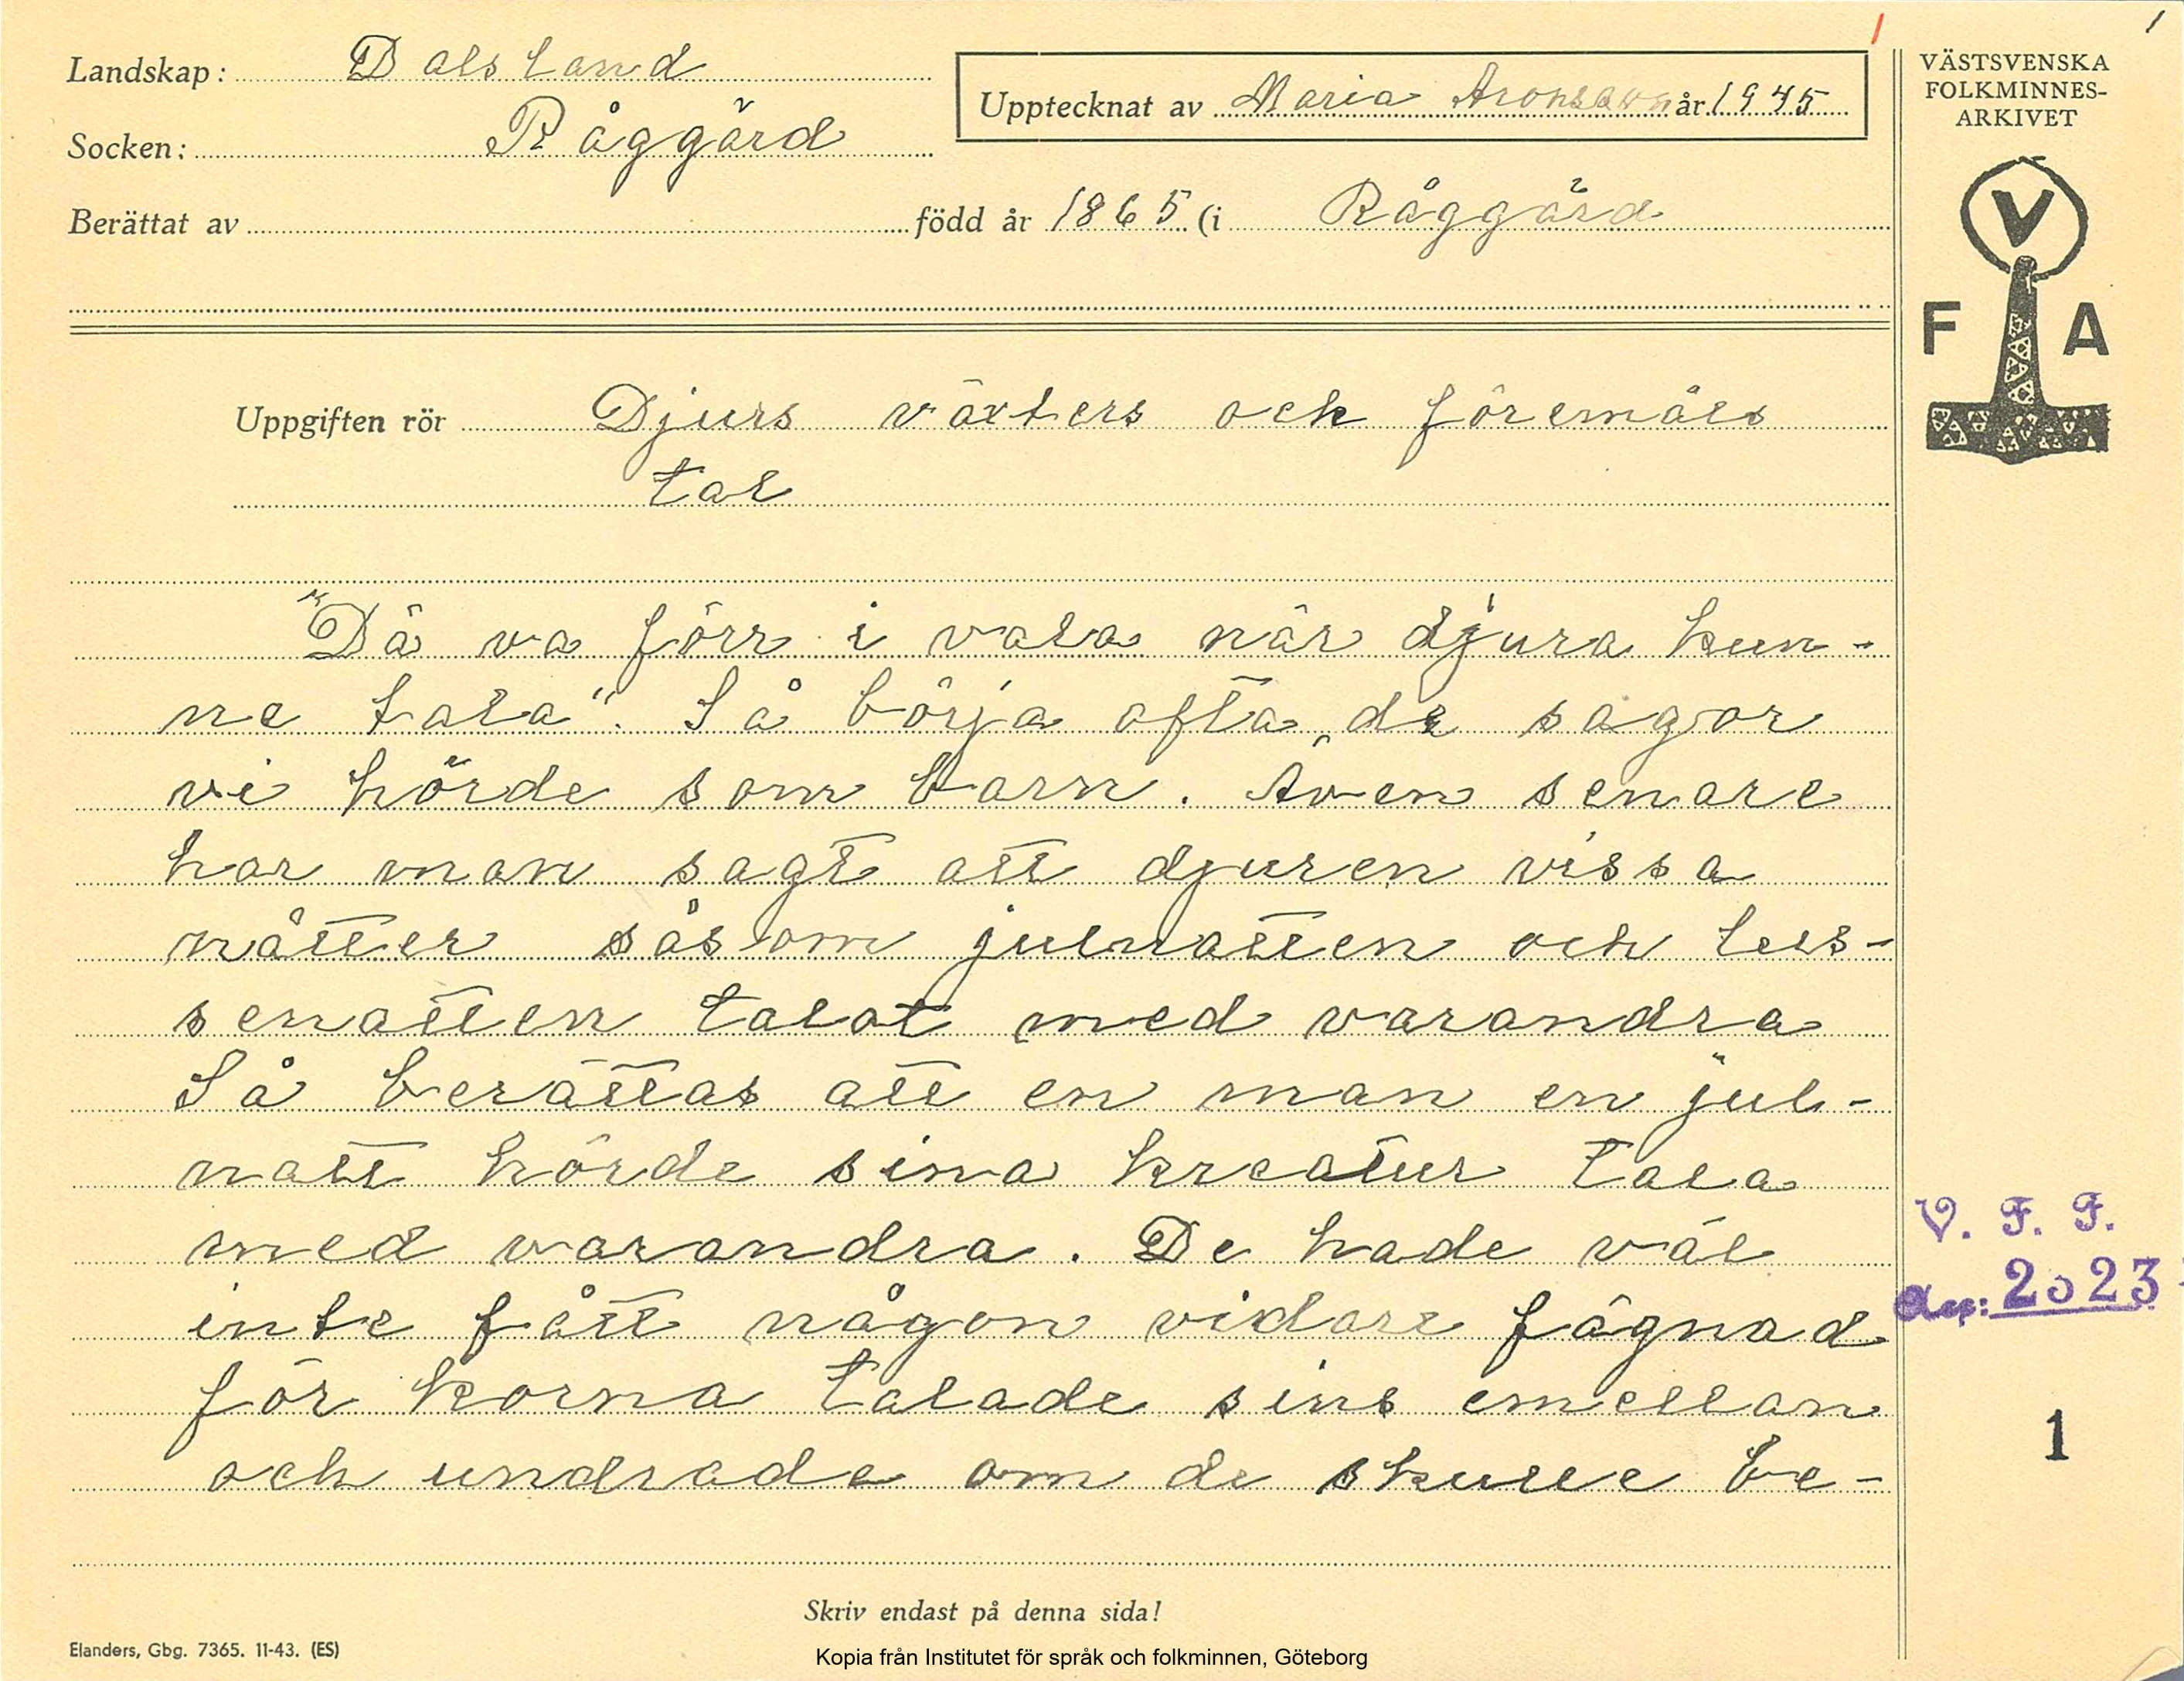 Landskap: Dalsland
Socken: Råggärd
Berättat av född år 1865 (i Råggärd
Upptecknat av Maria Aronsson år 1945
1
1
VÄSTSVENSKA
FOLKMINNES-
ARKIVET
V
F A
Uppgiften rör Djurs växters och föremåls
tal
"Dä va förr i vala när djura kun-
ne tala". Så börja ofta de sagor
vi hörde som barn. Även senare
har man sagt att djuren vissa
nätter såsom julnatten och lus-
senatten talat med varandra
Så berättas att en man en jul-
natt hörde sina kreatur tala
med varandra. De hade väl
inte fått någon vidare fägnad
för korna talade sins emellan
och undrade om de skulle be-
V. F. F.
dep: 2023
1
Skriv endast på denna sida!
Elanders, Gbg. 7365. 11-43. (ES)
Kopia från Institutet för språk och folkminnen, Göteborg